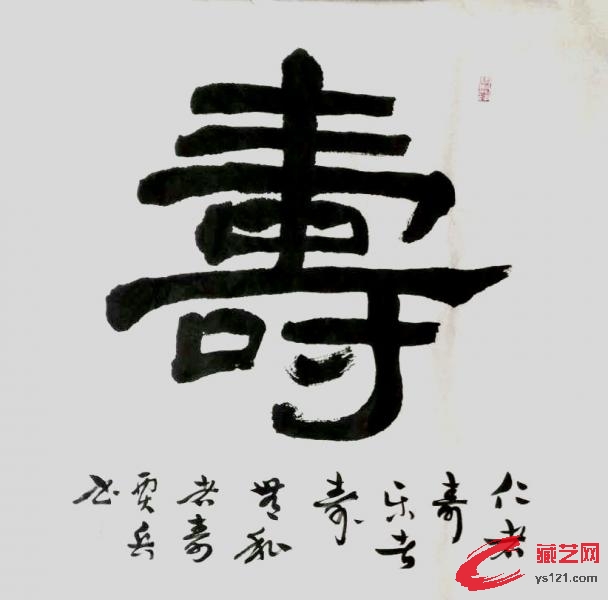 壽
仁者
寿
乐者
寿
无私
者寿
贾兵
书
藏艺网
ys121.com